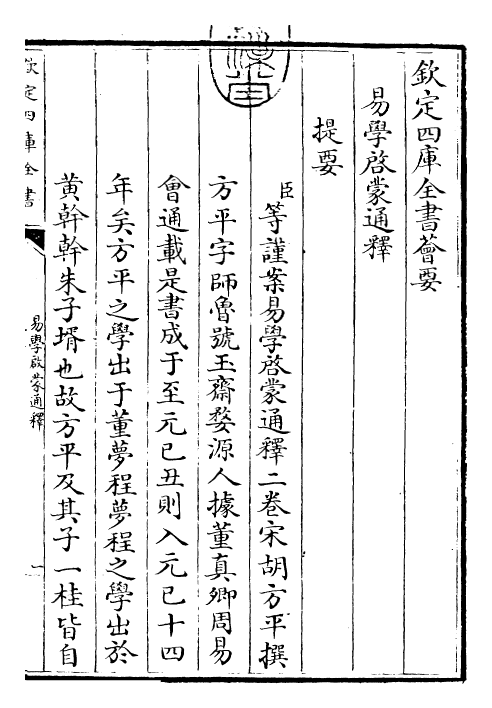 欽定四庫全書薈要
易學啓蒙通釋
提要
臣等謹案易學啓蒙通釋二卷宋胡方平撰
方平字師魯號玉齋婺源人據董真卿周易
會通載是書成于至元己丑則入元已十四
年矣方平之學出于董夢程夢程之學出於
黄幹幹朱子壻也故方平及其子一桂皆自
欽定四庫全書
易學啟蒙通釋
一